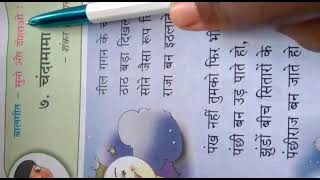 बालगीत - सुनो और दोहराओ :
७. चंदामामा
- शंकर
नील गगन के
ठाठ बड़ा दिखल
सोने जैसा रूप
राजा बन इठला
पंख नहीं तुमको फिर भी
पंछी बन उड़ पाते हो,
झुंडों बीच सितारों के
पंछीराज बन जाते हो।